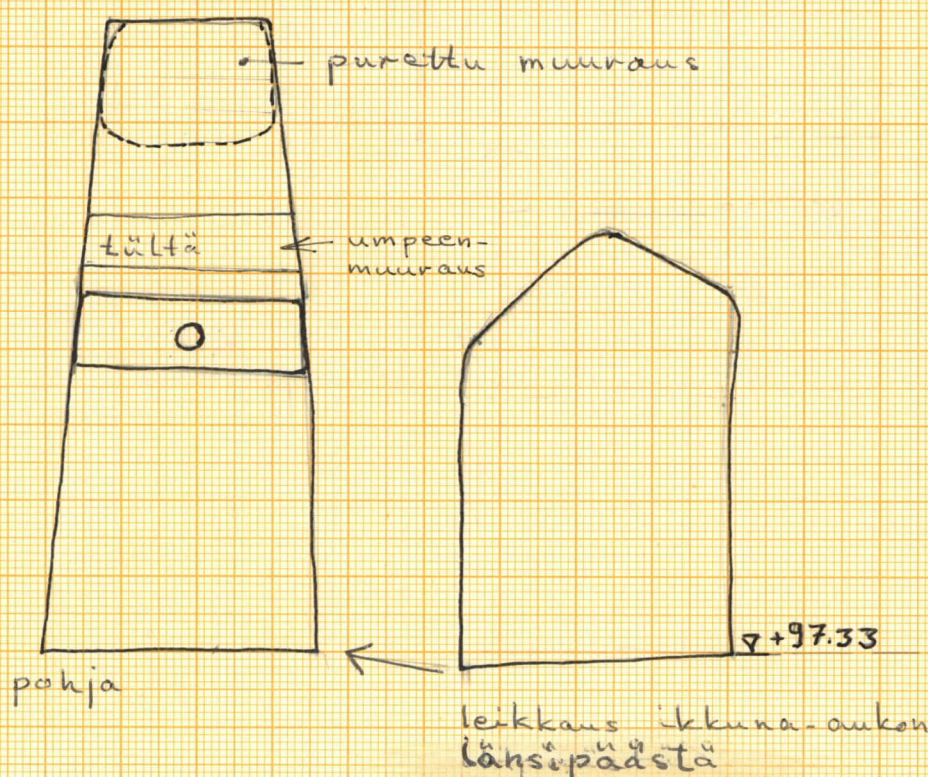 purettu muuraus
tültä
umpeen-
muuraus
+97.33
pohja
leikkaus ikkuna-aukon
länsipäästä